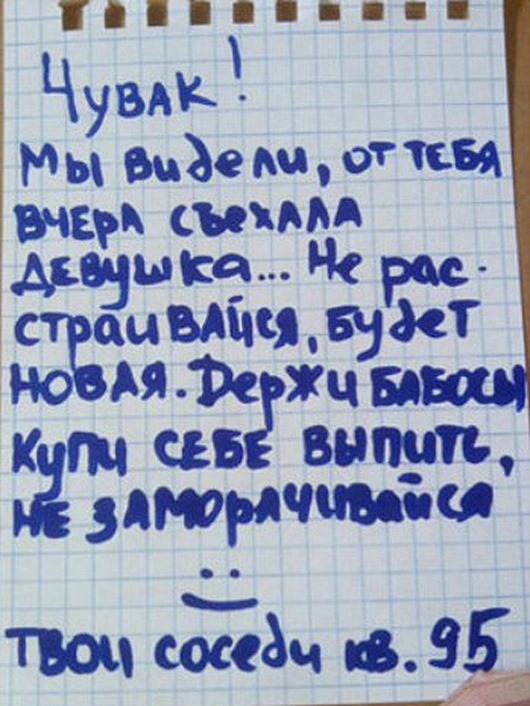 Чувак!
Мы видели, от тебя
вчера съехала
девушка... Не рас-
страивайся, будет
новая. Держи бабосы
купи себе выпить,
не заморачивайся
твои соседи кв. 95